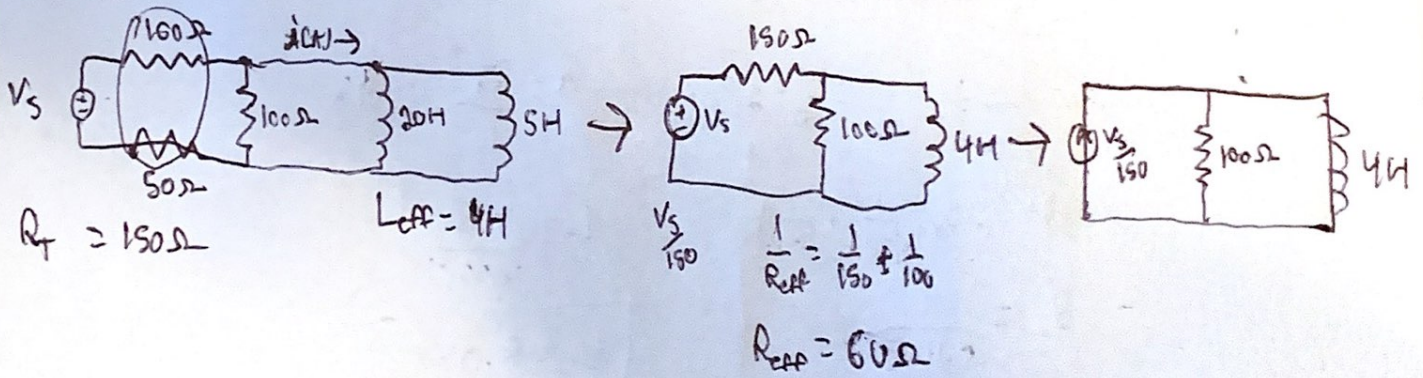 100Ω
i(t)→
Vs
±
100Ω
20H
5H
50Ω
R_T = 150Ω
Leff = 4H
→
150Ω
+
Vs
100Ω
4H
Vs/150
1/Reff = 1/150 + 1/100
Reff = 60Ω
→
Vs/150
100Ω
4H